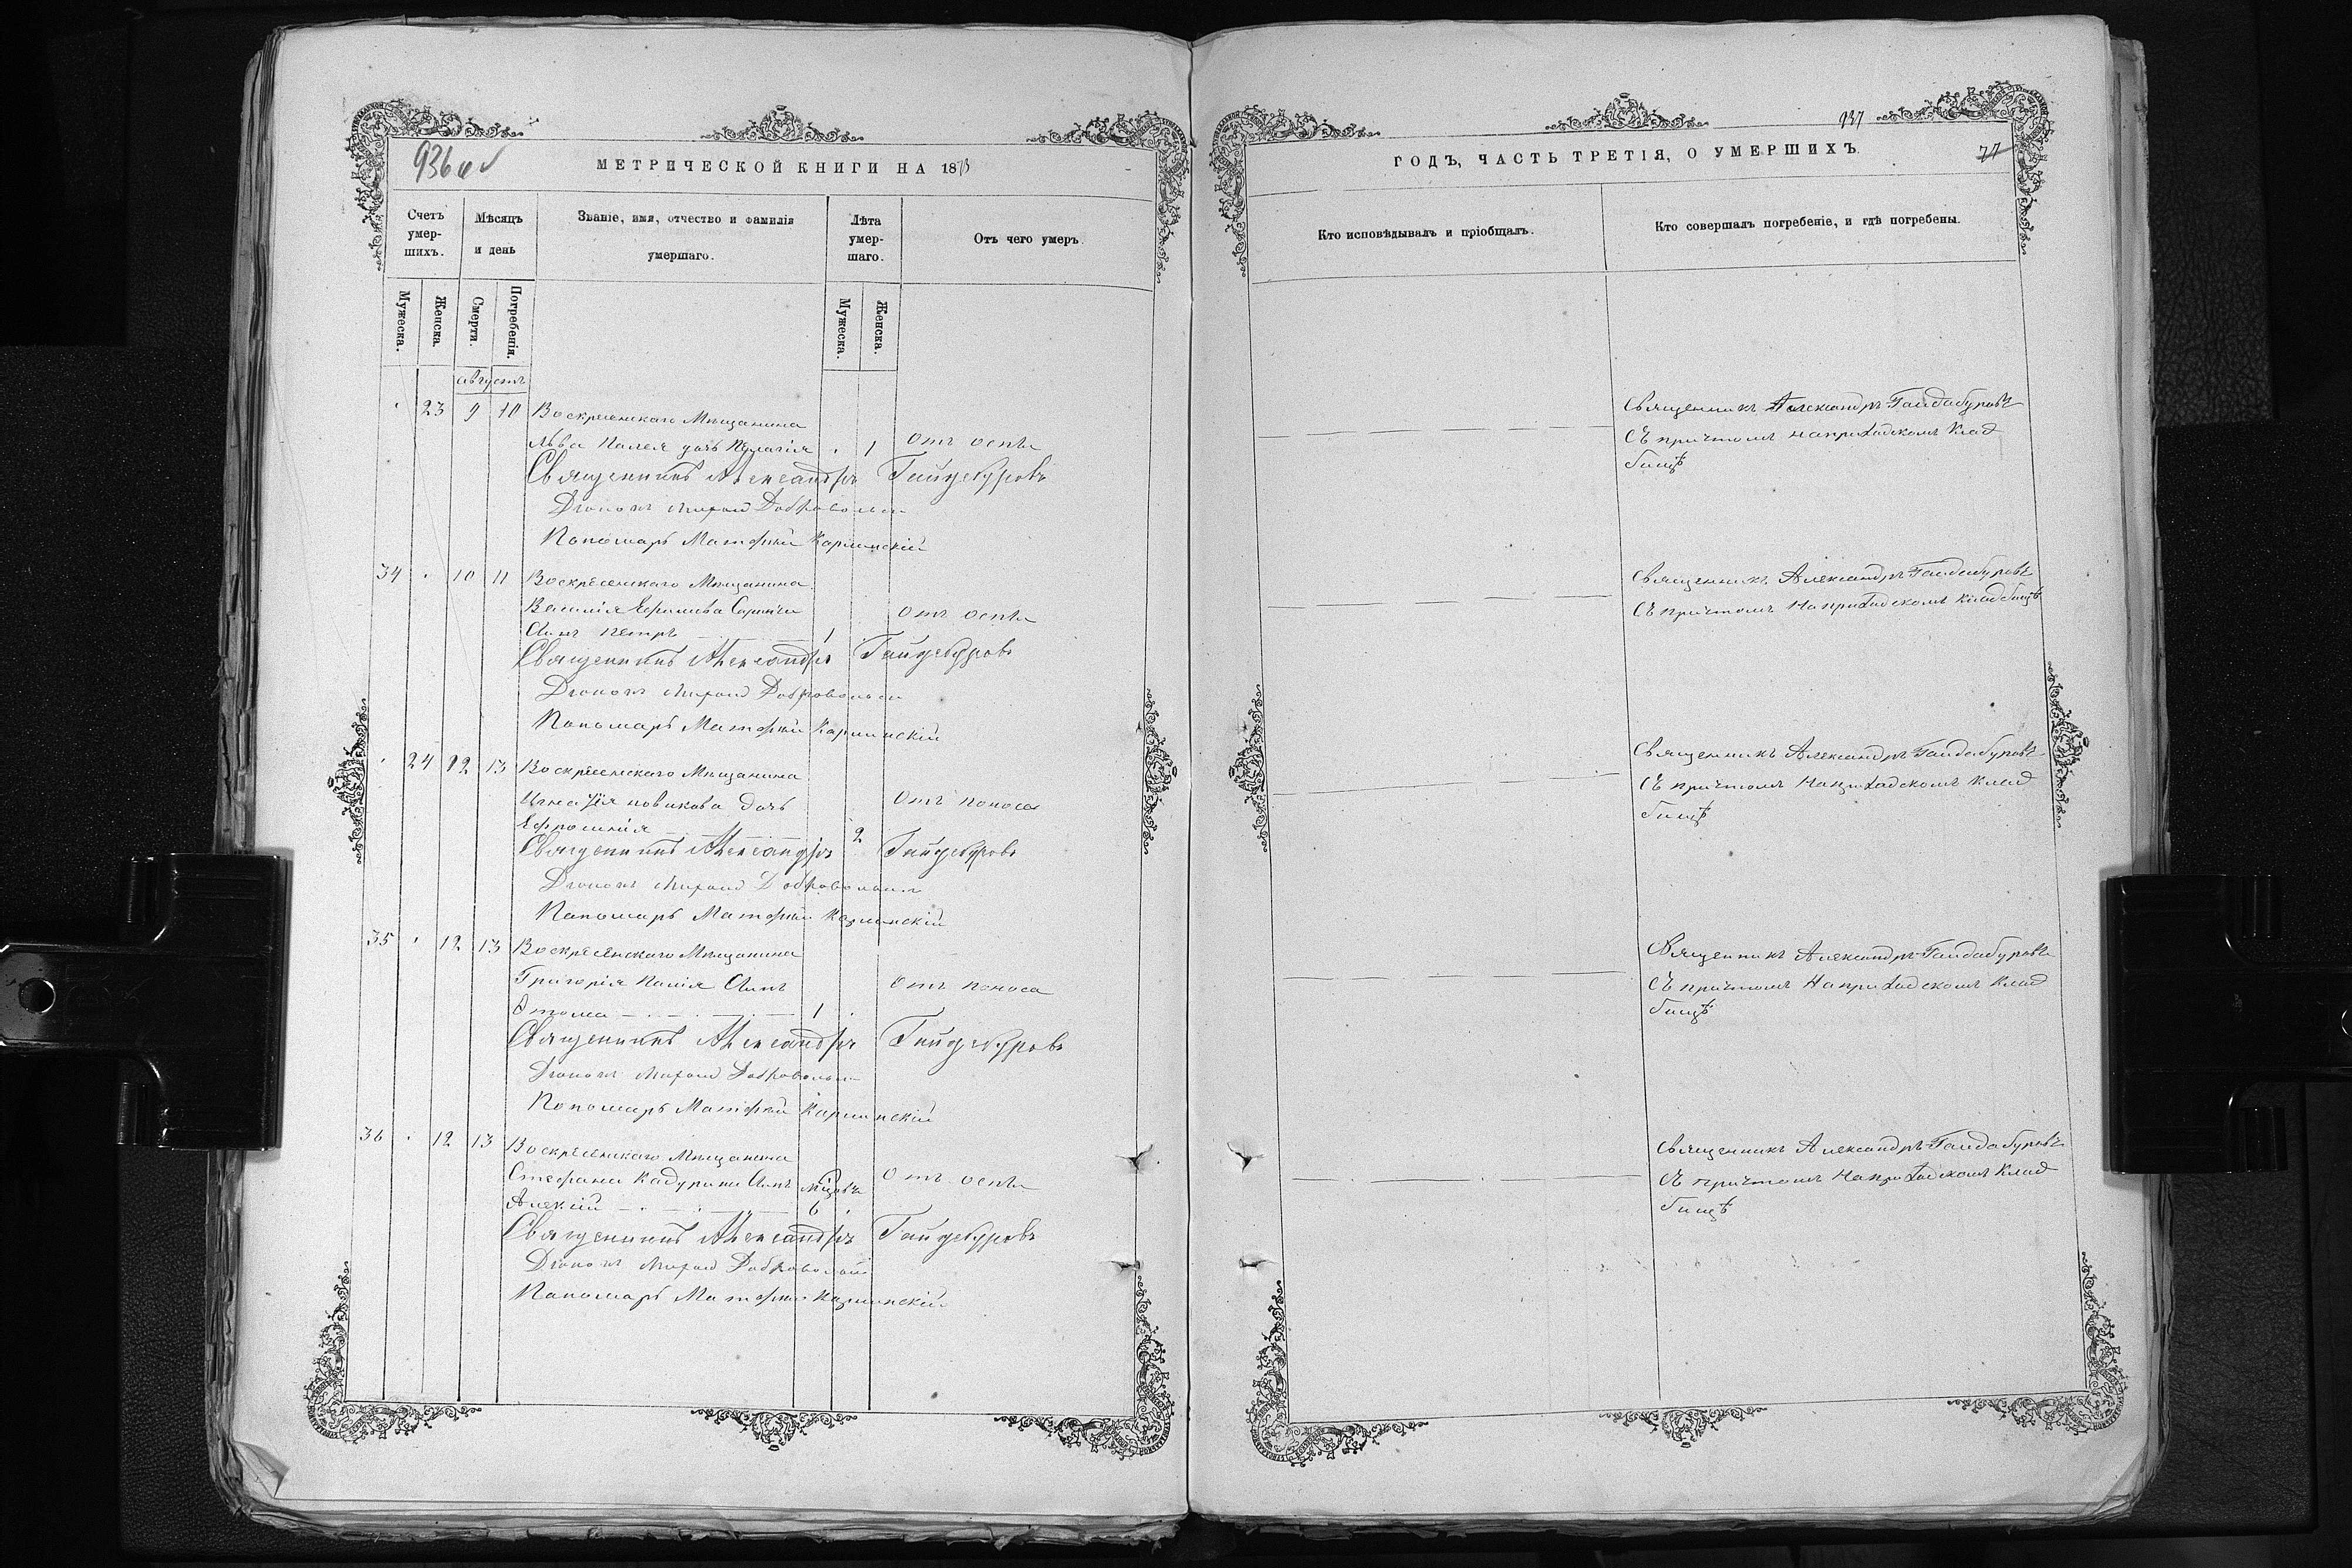 936 об
МЕТРИЧЕСКОЙ КНИГИ НА 1873
Счетъ умер- шихъ.
Мѣсяцъ и день
Званіе, имя, отчество и фамилія умершаго.
Лѣта умер- шаго.
Отъ чего умеръ.
Мужеска.
Женска.
Смерти.
Погребенія.
Мужеска.
Женска.
Августъ
23 9 10 Воскресенскаго Мѣщанина
Льва Палея дочь Пелагія 1 Отъ оспы
Священникъ Александръ Гайдебуровъ
Діаконъ Добровольскій
Пономарь Матфій Карпинскій
34 10 11 Воскресенскаго Мѣщанина
Василія Ефимова Отъ оспы
Сынъ Петръ 1
Священникъ Александръ Гайдебуровъ
Діаконъ Добровольскій
Пономарь Матфій Карпинскій
24 12 13 Воскресенскаго Мѣщанина
Игнатія Новикова дочь Отъ поноса
Ефросинія 2
Священникъ Александръ Гайдебуровъ
Діаконъ Добровольскій
Пономарь Матфій Карпинскій
35 12 13 Воскресенскаго Мѣщанина
Григорія Палія Сынъ Отъ поноса
Ѳома 1
Священникъ Александръ Гайдебуровъ
Діаконъ Добровольскій
Пономарь Матфій Карпинскій
36 12 13 Воскресенскаго Мѣщанина
Стефана Кадурина Сынъ Отъ оспы
Алексій 6
Священникъ Александръ Гайдебуровъ
Діаконъ Добровольскій
Пономарь Матфій Карпинскій
937
77
ГОДЪ, ЧАСТЬ ТРЕТІЯ, О УМЕРШИХЪ.
Кто исповѣдывалъ и пріобщалъ.
Кто совершалъ погребеніе, и гдѣ погребены.
Священникъ Александръ Гайдабуровъ
Съ причтомъ на приходскомъ клад
бищѣ
Священникъ Александръ Гайдабуровъ
Съ причтомъ На приходскомъ кладбищѣ
Священникъ Александръ Гайдабуровъ
Съ причтомъ На приходскомъ клад
бищѣ
Священникъ Александръ Гайдабуровъ
Съ причтомъ На приходскомъ клад
бищѣ
Священникъ Александръ Гайдабуровъ
Съ причтомъ На приходскомъ клад
бищѣ